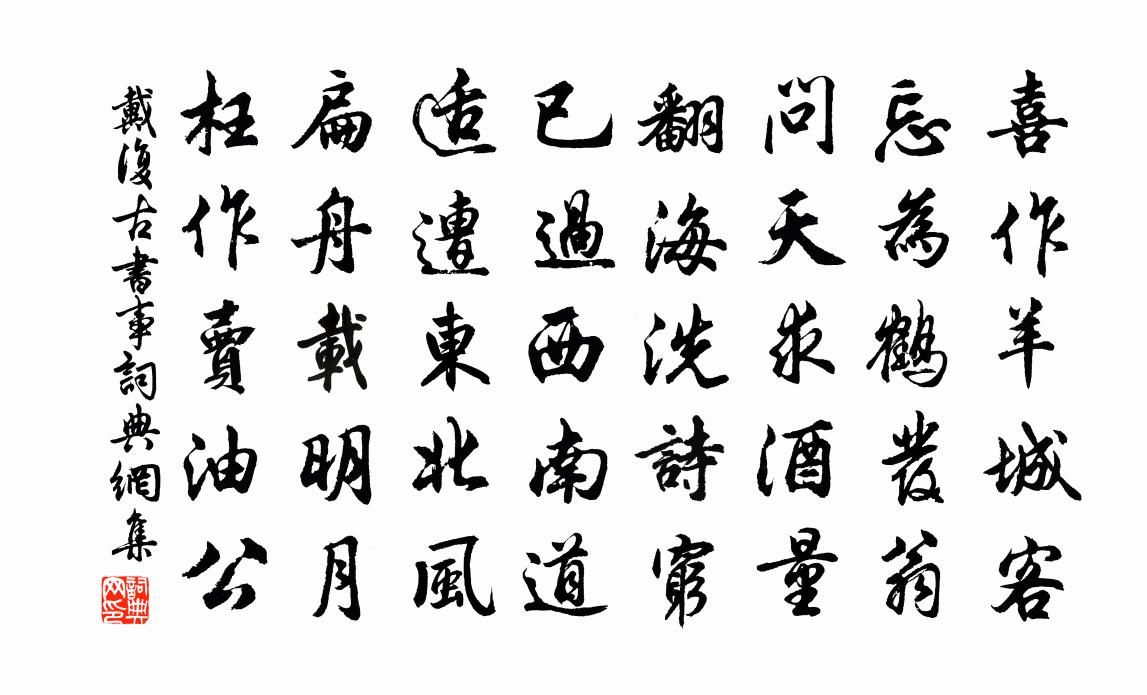 喜作羊城客
忘為鶴發翁
問天求酒量
翻海洗詩窮
已過西南道
适遭東北風
扁舟載明月
枉作賣油公
戴復古書事詞典網集
詞典
网印